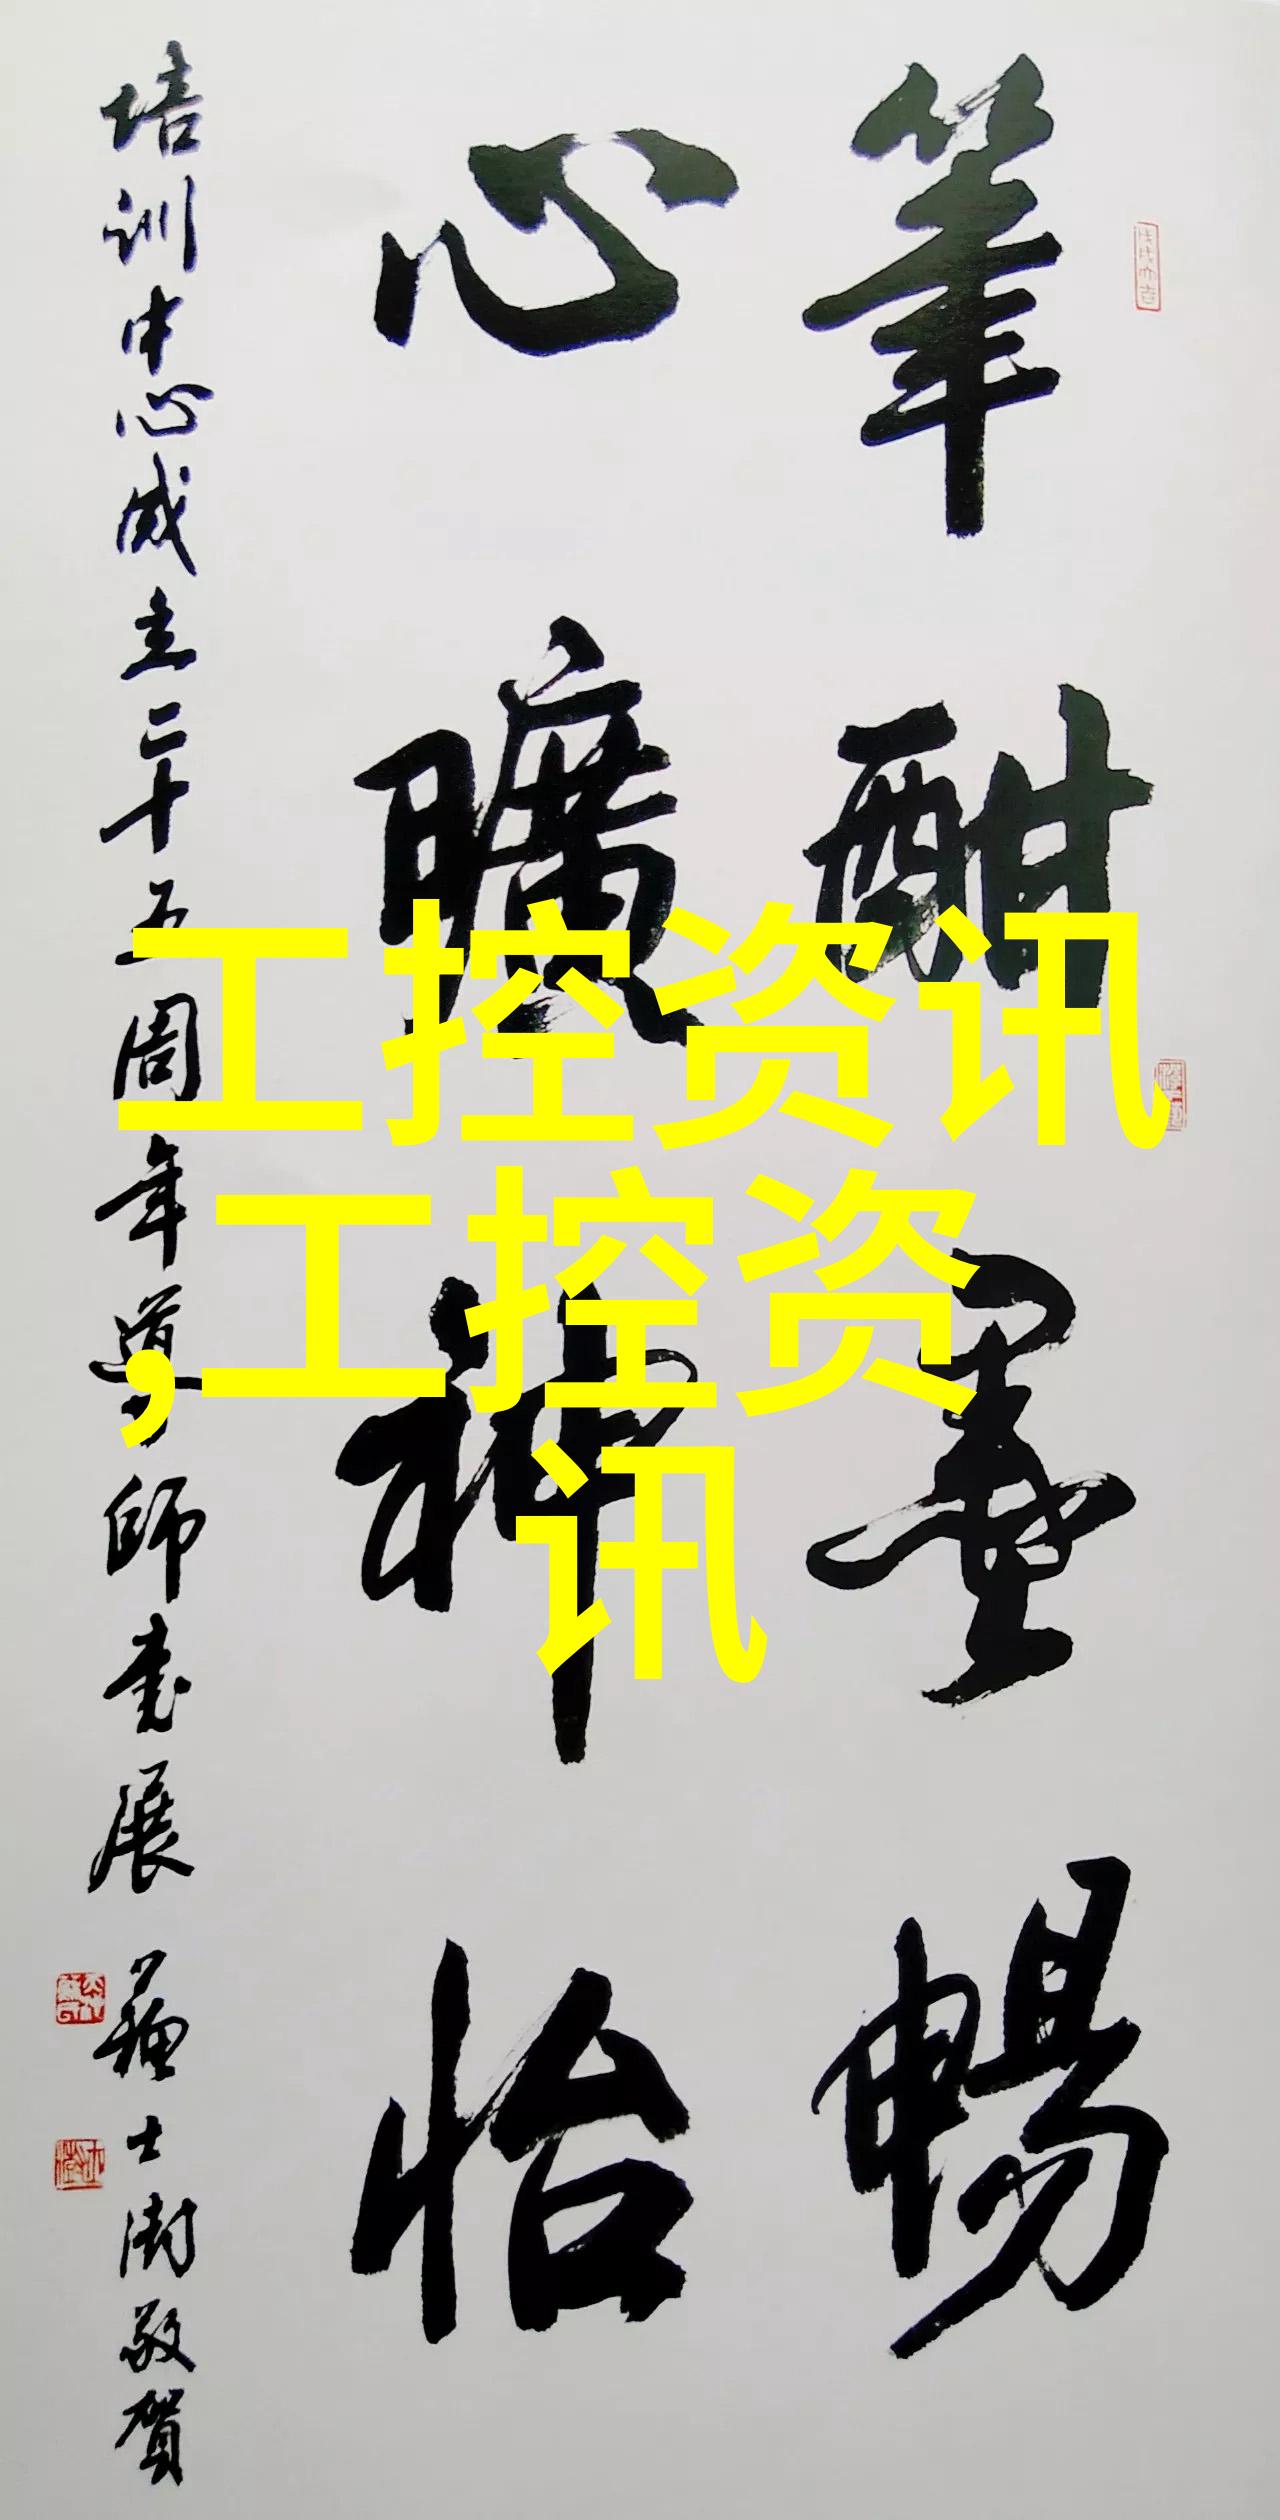 筆酣墨暢
心曠神怡
培训中心成立二十五周年導師書展
蘇士澍敬賀
工控资讯
,工控资
讯